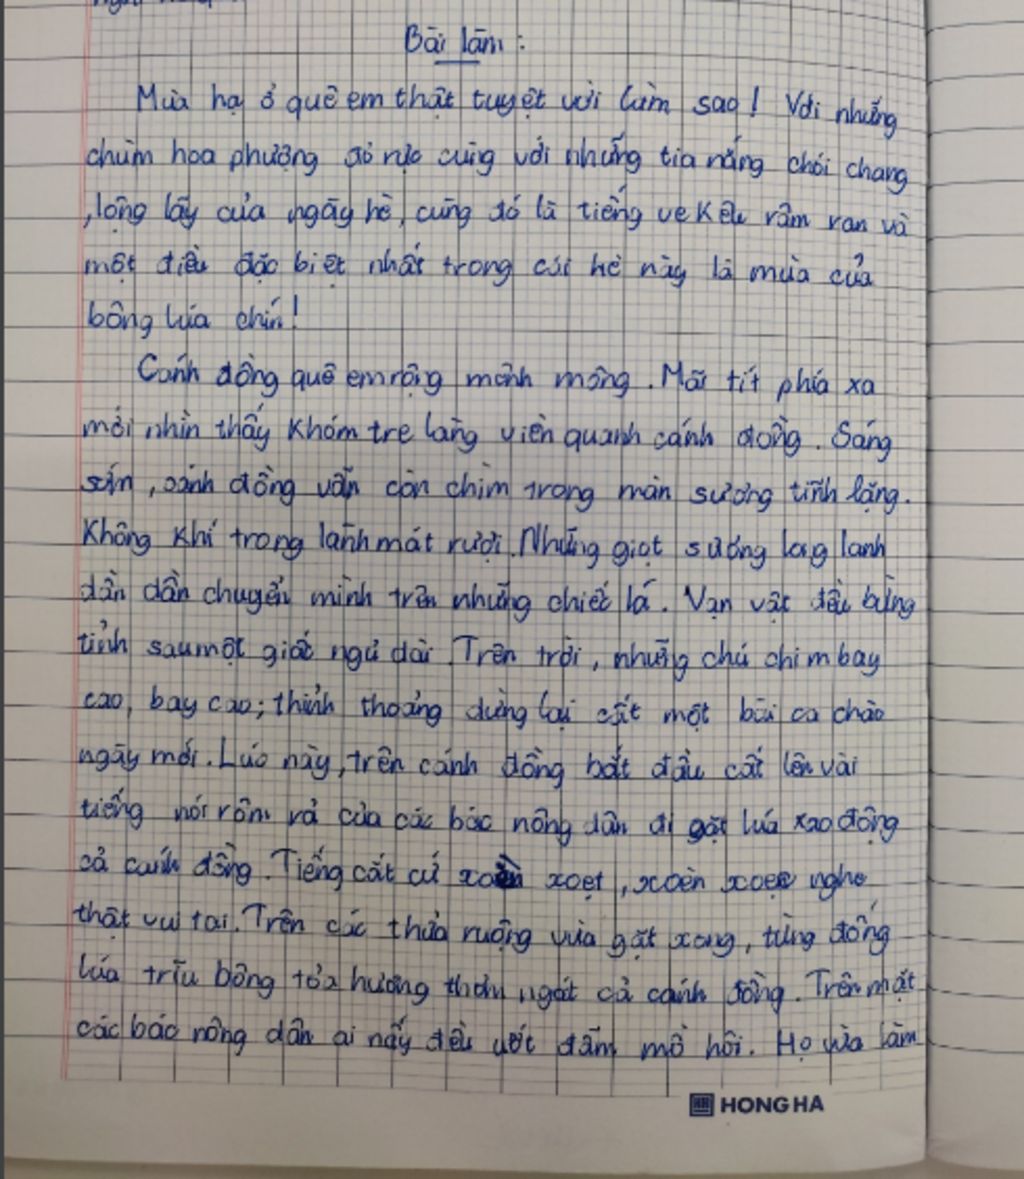 Bài làm :
Mùa hạ ở quê em thật tuyệt vời làm sao! Với những
chùm hoa phượng đỏ rực cùng với những tia nắng chói chang
, lộng lẫy của ngày hè, cùng đó là tiếng ve kêu râm ran và
một điều đặc biệt nhất trong cái hè này là mùa của
bông lúa chín!
Cánh đồng quê em rộng mênh mông. Mãi tít phía xa
mới nhìn thấy khóm tre làng viền quanh cánh đồng. Sáng
sớm, cánh đồng vẫn còn chìm trong màn sương tĩnh lặng.
Không khí trong lành mát rượi. Những giọt sương long lanh
dần dần chuyển mình trên những chiếc lá. Vạn vật đều bừng
tỉnh sau một giấc ngủ dài. Trên trời, những chú chim bay
cao, bay cao; thỉnh thoảng dừng lại cất một bài ca chào
ngày mới. Lúc này, trên cánh đồng bắt đầu cất lên vài
tiếng nói rôm rả của các bác nông dân đi gặt lúa xao động
cả cánh đồng. Tiếng cắt cứ xoèn xoẹt, xoèn xoẹt nghe
thật vui tai. Trên các thửa ruộng vừa gặt xong, từng đống
lúa trĩu bông tỏa hương thơm ngát cả cánh đồng. Trên mặt
các bác nông dân ai nấy đều ướt đẫm mồ hôi. Họ vừa làm
HONG HA